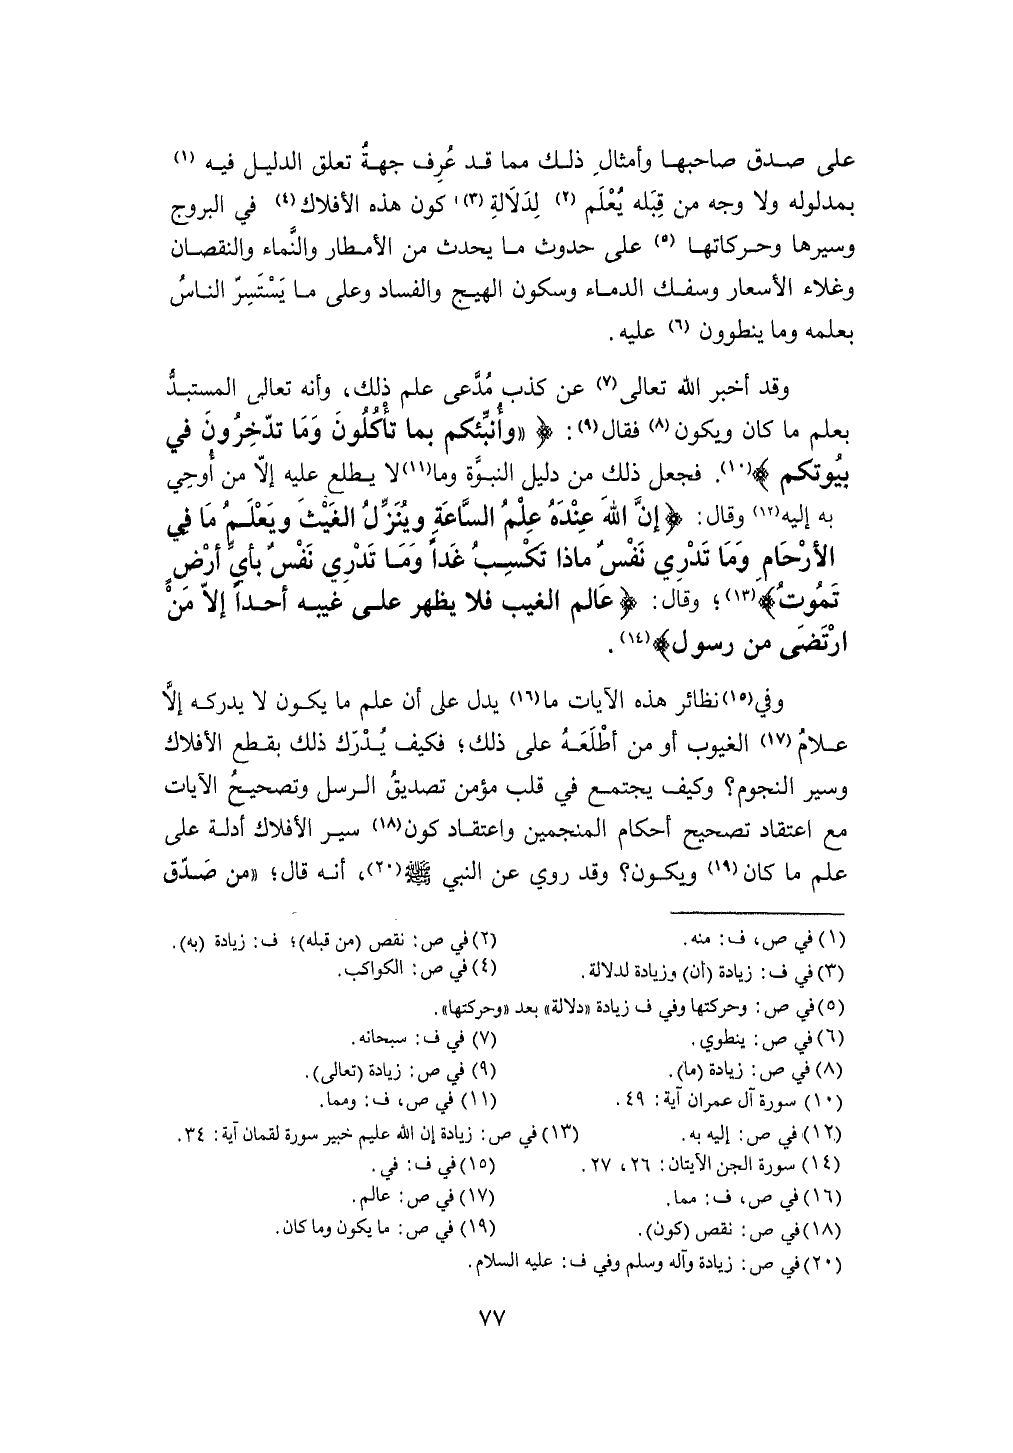 على صدق صاحبها وأمثالِ ذلك مما قد عُرِف جهةُ تعلق الدليل فيه (١)
بمدلوله ولا وجه من قِبَله يُعْلَم (٢) لِدَلَالةِ (٣) كون هذه الأفلاك (٤) في البروج
وسيرها وحركاتها (٥) على حدوث ما يحدث من الأمطار والنَّماء والنقصان
وغلاء الأسعار وسفك الدماء وسكون الهيج والفساد وعلى ما يَسْتَسِرّ الناسُ
بعلمه وما ينطوون (٦) عليه.
وقد أخبر الله تعالى (٧) عن كذب مُدَّعى علم ذلك، وأنه تعالى المستبدُّ
بعلم ما كان ويكون (٨) فقال (٩): ﴿ «وأُنبِّئكم بما تأْكُلُونَ وَمَا تدّخِرُونَ في
بيُوتكم ﴾(١٠). فجعل ذلك من دليل النبوَّة وما(١١)لا يطلع عليه إلّا من أُوحِي
به إليه(١٢) وقال: ﴿ إنَّ اللهَ عِنْدَهُ عِلْمُ السَّاعَةِ ويُنَزِّلُ الغَيْثَ ويَعْلَمُ مَا فِي
الأرْحَامِ وَمَا تَدْرِي نَفْسٌ ماذا تَكْسِبُ غَداً وَمَا تَدْرِي نَفْسٌ بأيِّ أرْضٍ
تَمُوتُ﴾(١٣)؛ وقال: ﴿ عَالم الغيب فلا يظهر على غيبه أحداً إلاّ مَنْ
ارْتَضَى من رسول﴾(١٤).
وفي(١٥)نظائر هذه الآيات ما(١٦) يدل على أن علم ما يكون لا يدركه إلَّا
علامُ (١٧) الغيوب أو من أطْلَعَهُ على ذلك؛ فكيف يُدْرَك ذلك بقطع الأفلاك
وسير النجوم؟ وكيف يجتمع في قلب مؤمن تصديقُ الرسل وتصحيحُ الآيات
مع اعتقاد تصحيح أحكام المنجمين واعتقاد كون(١٨) سير الأفلاك أدلة على
علم ما كان (١٩) ويكون؟ وقد روي عن النبي ﷺ(٢٠)، أنه قال؛ «من صَدّق
(١) في ص، ف: منه.
(٢) في ص: نقص (من قبله)؛ ف: زيادة (به).
(٣) في ف: زيادة (أن) وزيادة لدلالة.
(٤) في ص: الكواكب.
(٥) في ص: وحركتها وفي ف زيادة «دلالة» بعد «وحركتها».
(٦) في ص: ينطوي.
(٧) في ف: سبحانه.
(٨) في ص: زيادة (ما).
(٩) في ص: زيادة (تعالى).
(١٠) سورة آل عمران آية: ٤٩.
(١١) في ص، ف: ومما.
(١٢) في ص: إليه به.
(١٣) في ص: زيادة إن الله عليم خبير سورة لقمان آية: ٣٤.
(١٤) سورة الجن الآيتان: ٢٦، ٢٧.
(١٥) في ف: في.
(١٦) في ص، ف: مما.
(١٧) في ص: عالم.
(١٨) في ص: نقص (كون).
(١٩) في ص: ما يكون وما كان.
(٢٠) في ص: زيادة وآله وسلم وفي ف: عليه السلام.
٧٧